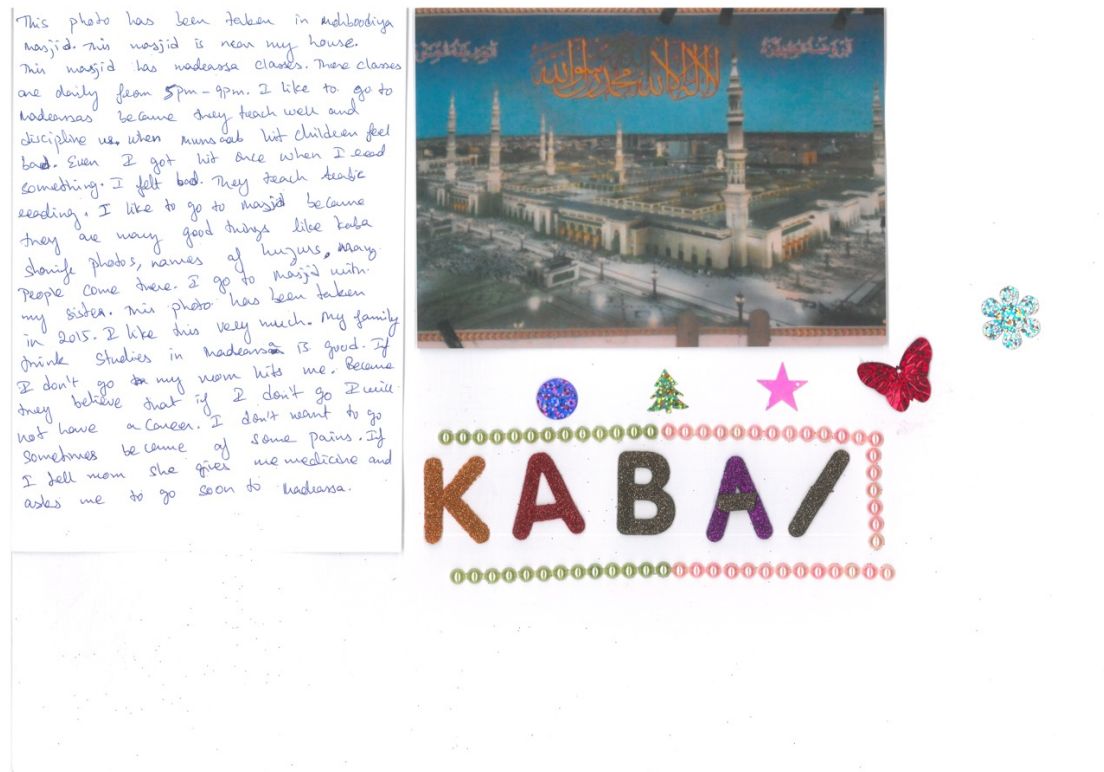 This photo has been taken in Mehboodiya
masjid. This masjid is near my house.
This masjid has madearssa classes. There classes
are daily from 5pm-9pm. I like to go to
Madearsas because they teach well and
discipline us. when munsaab hit children feel
bad. Even I got hit once when I read
something. I felt bad. They teach Arabic
reading. I like to go to masjid because
they are many good things like kaba
sharife photos, names of huzurs, Many
People come there. I go to masjid with
my sister. This photo has been taken
in 2015. I like this very much. My family
think studies in madearsa is good. If
I don't go my mom hits me. Because
they believe that if I don't go I will
not have a career. I don't want to go
sometimes because of some pains. If
I tell mom she gives me medicine and
asks me to go soon to Madearssa.
لا اله الا الله محمد رسول الله
KABA/